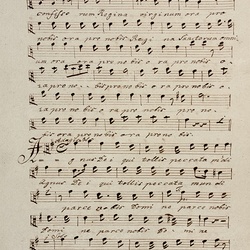 confessorum Regina virginum ora pro
nobis ora pro nobis Regina Sanctorum omni
um ora ora pro nobis ora pro nobis o
ra pro nobis ora pro nobis ora pro nobis o
ra pro nobis ora pro nobis pro no
bis ora pro nobis ora pro nobis
Agnus Dei qui tollis peccata mundi
Agnus Dei qui tollis peccata mundi
parce nobis Domine parce nobis
Domine parce nobis Domine